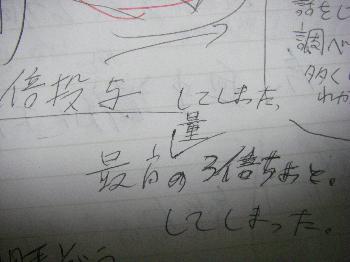 話をし
調べ
多く
倍投与 してしまった、
量
最高の3倍ちょっと。
してしまった。